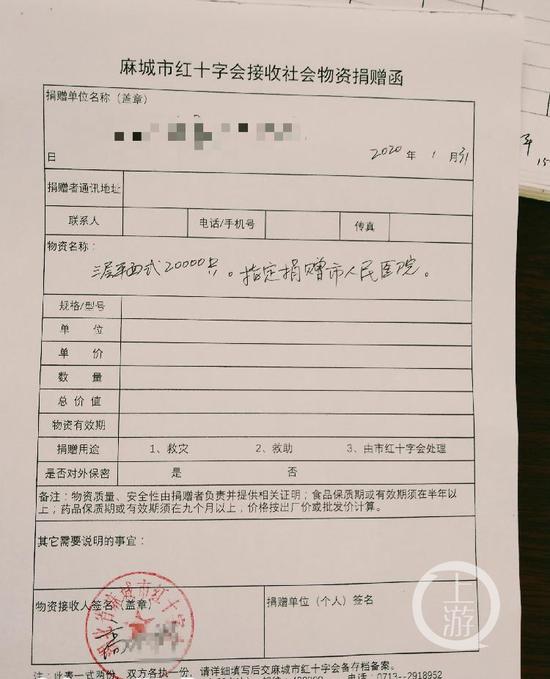 麻城市红十字会接收社会物资捐赠函
捐赠单位名称（盖章）
2020 年 1 月 31
日
捐赠者通讯地址
联系人 电话/手机号 传真
物资名称：
20000只。指定捐赠市人民医院。
规格/型号
单 位
单 价
数 量
总 价 值
物资有效期
捐赠用途 1、救灾 2、救助 3、由市红十字会处理
是否对外保密 是 否
备注：物资质量、安全性由捐赠者负责并提供相关证明；食品保质期或有效期须在半年以
上；药品保质期或有效期须在九个月以上，价格按出厂价或批发价计算。
其它需要说明的事宜：
物资接收人签名（盖章） 捐赠单位（个人）签名
省麻城市红十字
注：此表一式两份，双方各执一份，请详细填写后交麻城市红十字会备存档备案。
0713--2918952
年
15
上游